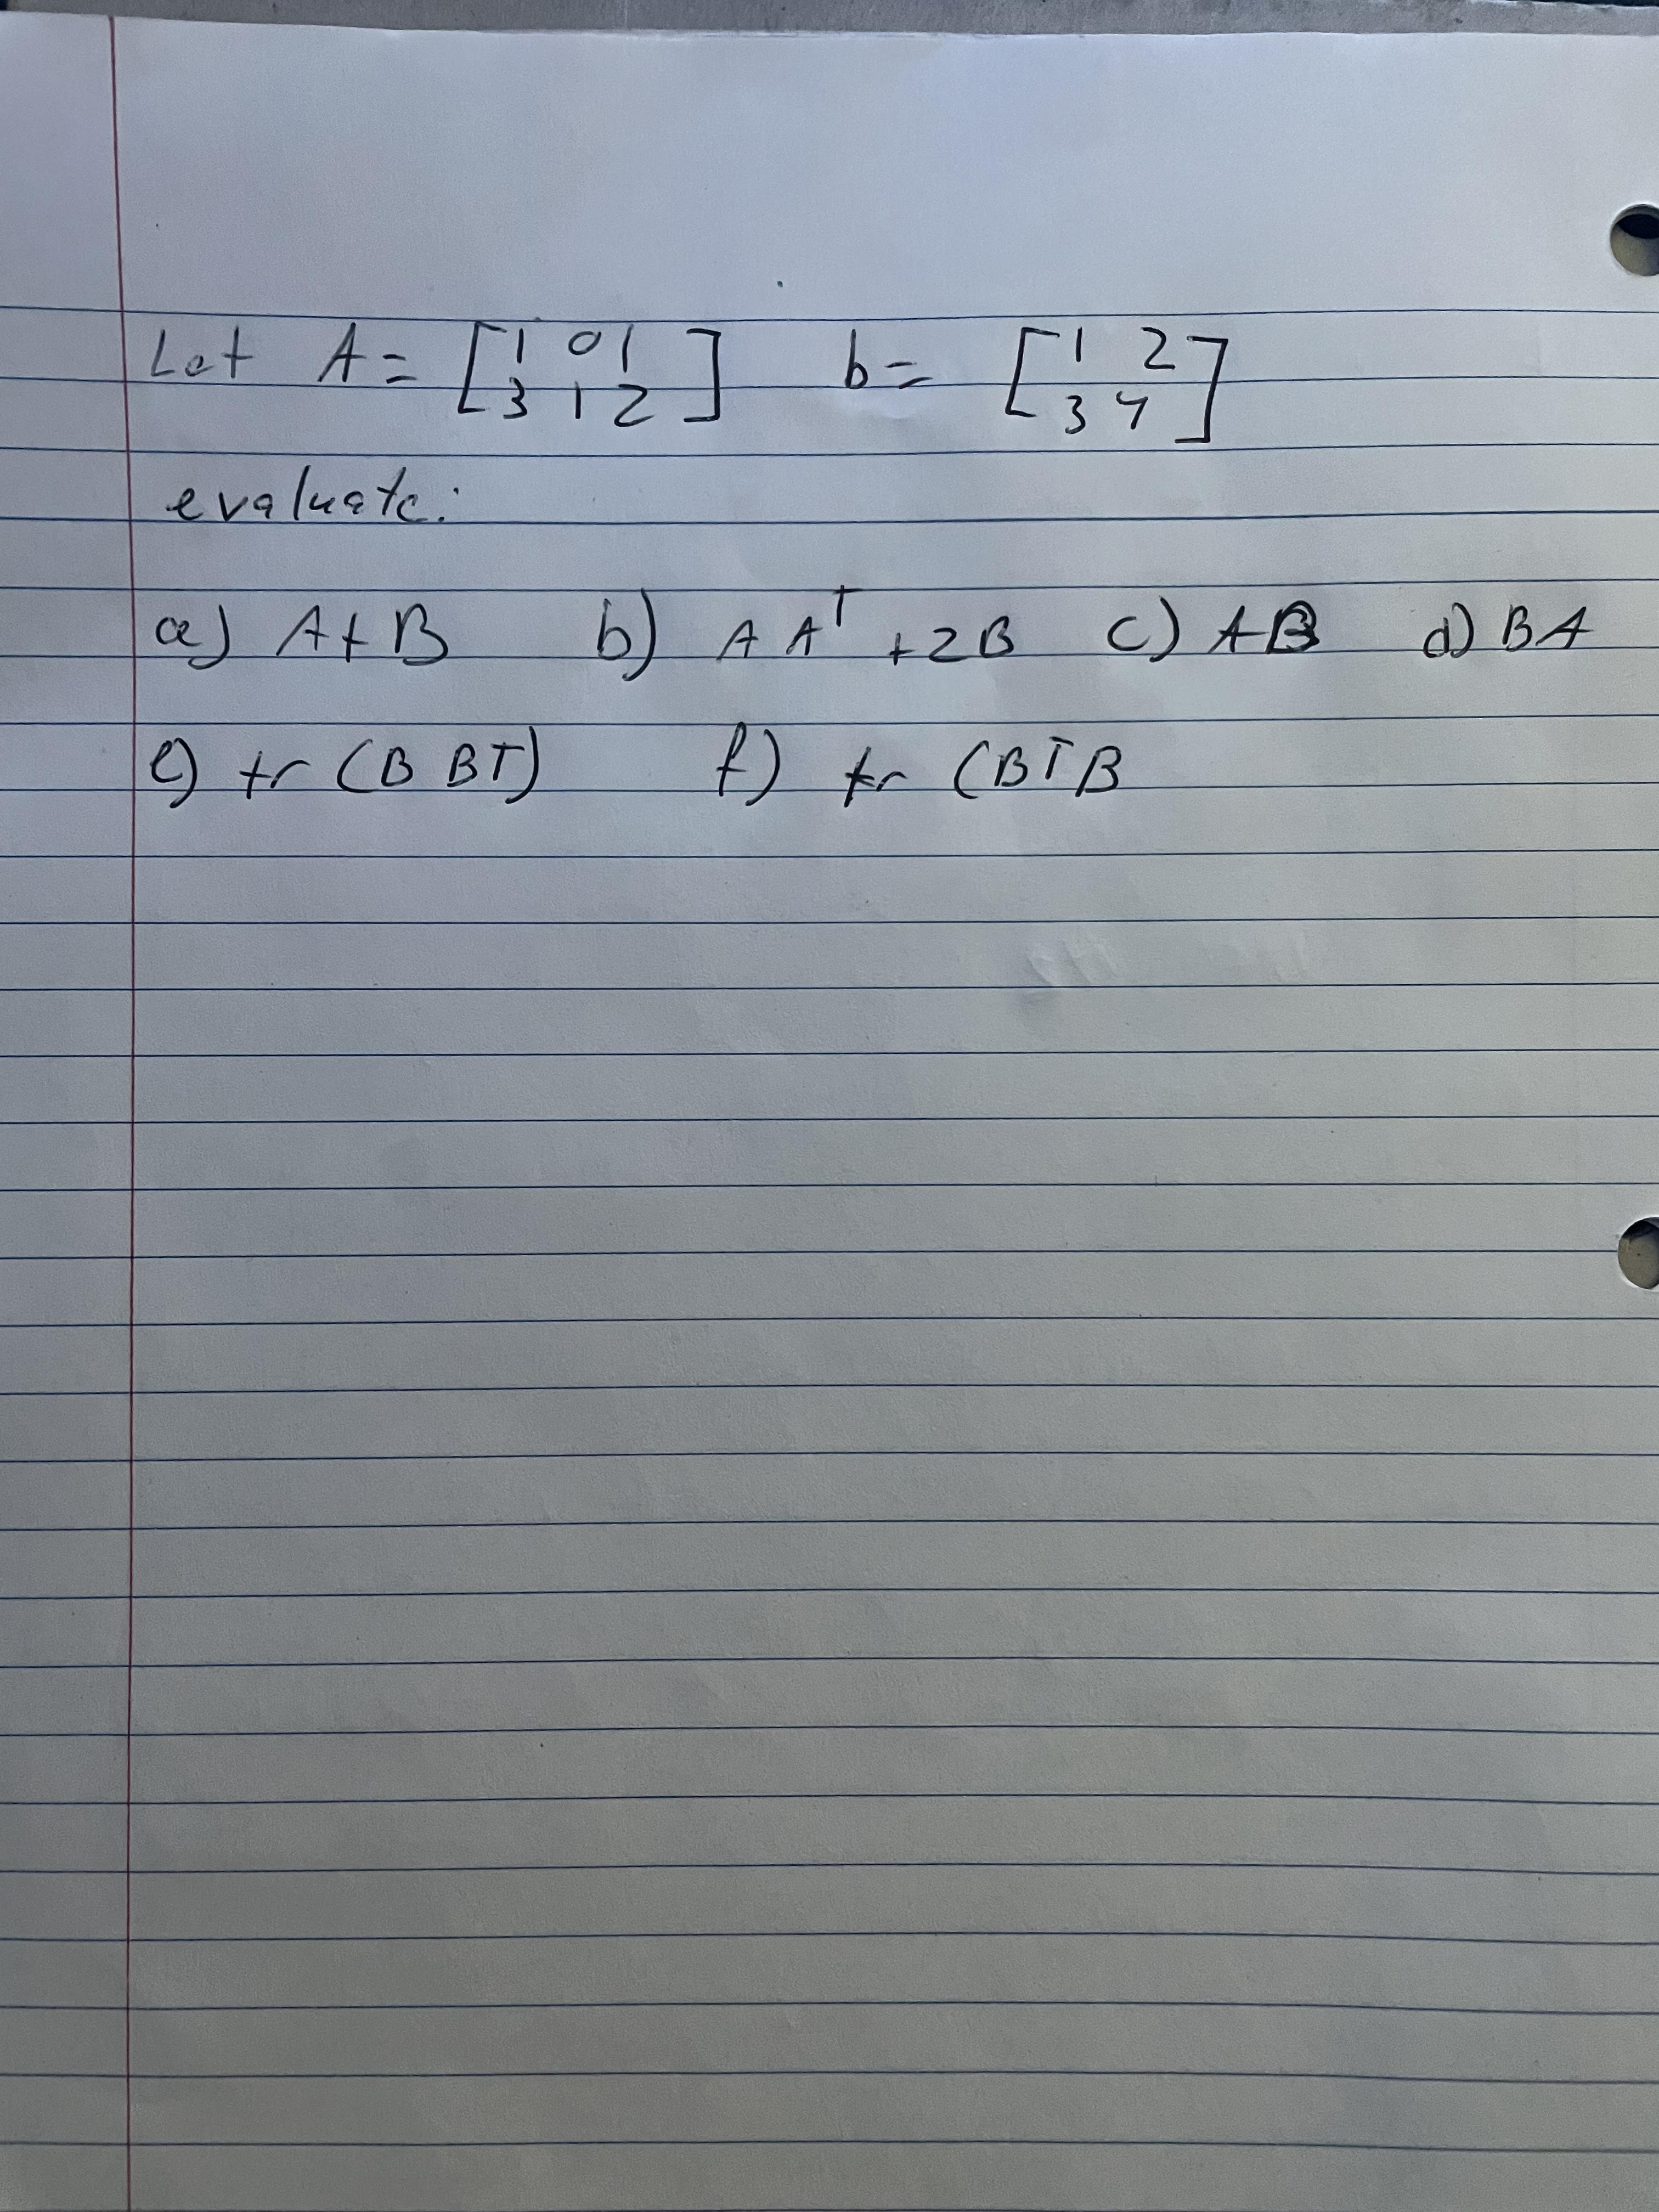 Let A = [1 0 1 b = [1 2
3 1 2] 3 4]
evaluate:
a) A + B b) A A^T + 2B c) AB d) BA
e) tr (B BT) f) tr (BTB